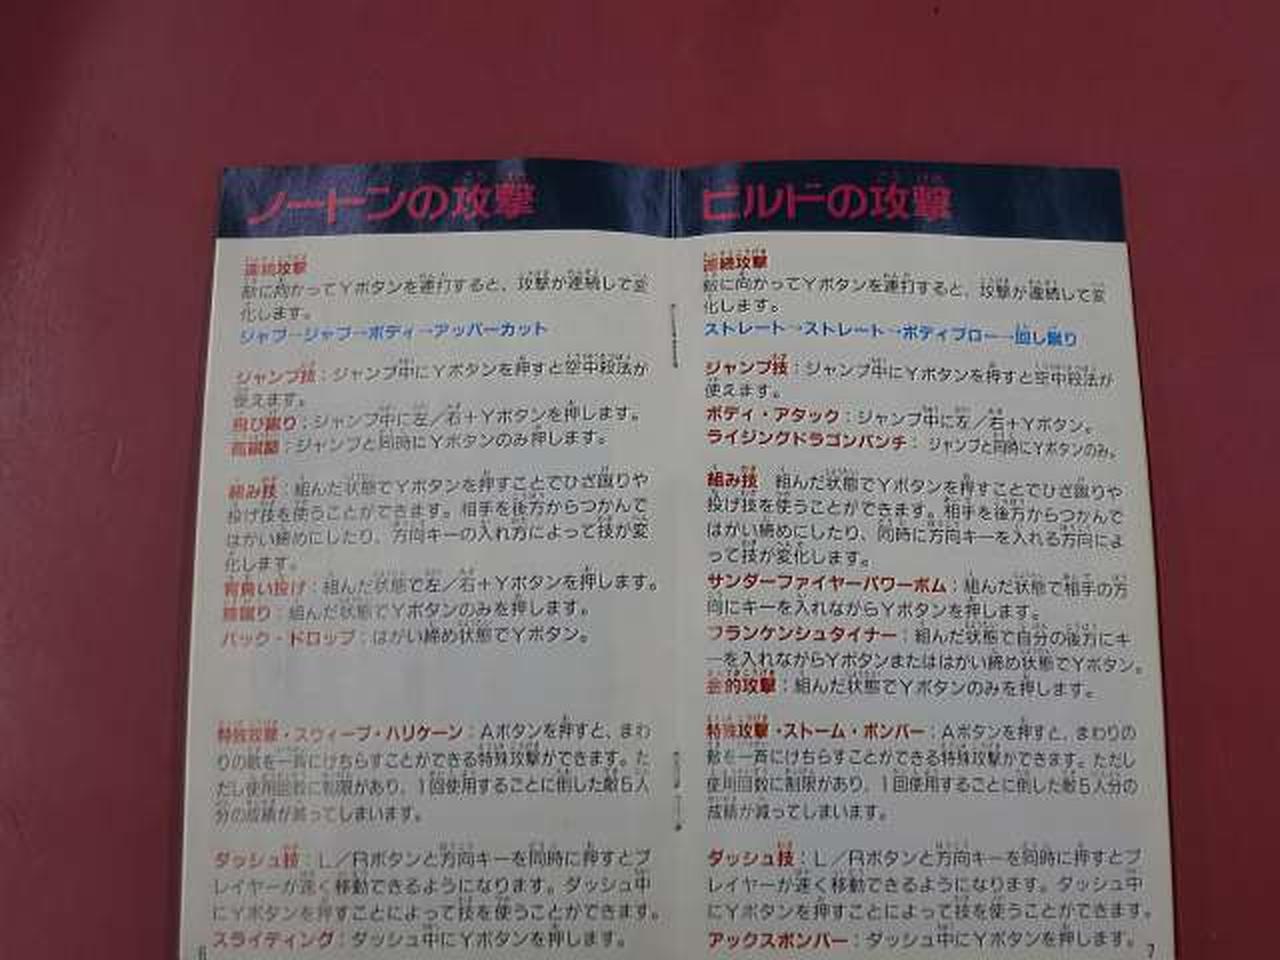 ノートンの攻撃
連続攻撃
敵に向かってYボタンを連打すると、攻撃が連続して変
化します。
ジャブ→ジャブ→ボディ→アッパーカット
ジャンプ技：ジャンプ中にYボタンを押すと空中殺法が
使えます。
飛び蹴り：ジャンプ中に左／右＋Yボタンを押します。
：ジャンプと同時にYボタンのみ押します。
組み技：組んだ状態でYボタンを押すことでひざ蹴りや
投げ技を使うことができます。相手を後方からつかんで
はがい締めにしたり、方向キーの入れ方によって技が変
化します。
背負い投げ：組んだ状態で左／右＋Yボタンを押します。
膝蹴り：組んだ状態でYボタンのみを押します。
バック・ドロップ：はがい締め状態でYボタン。
特殊攻撃・スウィープ・ハリケーン：Aボタンを押すと、まわ
りの敵を一斉にけちらすことができる特殊攻撃ができます。た
だし使用回数に制限があり、1回使用するごとに倒した敵5人
分の成績が減ってしまいます。
ダッシュ技：L／Rボタンと方向キーを同時に押すとプ
レイヤーが速く移動できるようになります。ダッシュ中
にYボタンを押すことによって技を使うことができます。
スライディング：ダッシュ中にYボタンを押します。
6
ビルドの攻撃
連続攻撃
敵に向かってYボタンを連打すると、攻撃が連続して変
化します。
ストレート→ストレート→ボディブロー→回し蹴り
ジャンプ技：ジャンプ中にYボタンを押すと空中殺法が
使えます。
ボディ・アタック：ジャンプ中に左／右＋Yボタン。
ライジングドラゴンパンチ：ジャンプと同時にYボタンのみ。
組み技　組んだ状態でYボタンを押すことでひざ蹴りや
投げ技を使うことができます。相手を後方からつかんで
はがい締めにしたり、同時に方向キーを入れる方向によ
って技が変化します。
サンダーファイヤーパワーボム：組んだ状態で相手の方
向にキーを入れながらYボタンを押します。
フランケンシュタイナー：組んだ状態で自分の後方にキ
ーを入れながらYボタンまたははがい締め状態でYボタン。
金的攻撃：組んだ状態でYボタンのみを押します。
特殊攻撃・ストーム・ボンバー：Aボタンを押すと、まわりの
敵を一斉にけちらすことができる特殊攻撃ができます。ただし
使用回数に制限があり、1回使用するごとに倒した敵5人分の
成績が減ってしまいます。
ダッシュ技：L／Rボタンと方向キーを同時に押すとプ
レイヤーが速く移動できるようになります。ダッシュ中
にYボタンを押すことによって技を使うことができます。
アックスボンバー：ダッシュ中にYボタンを押します。
7